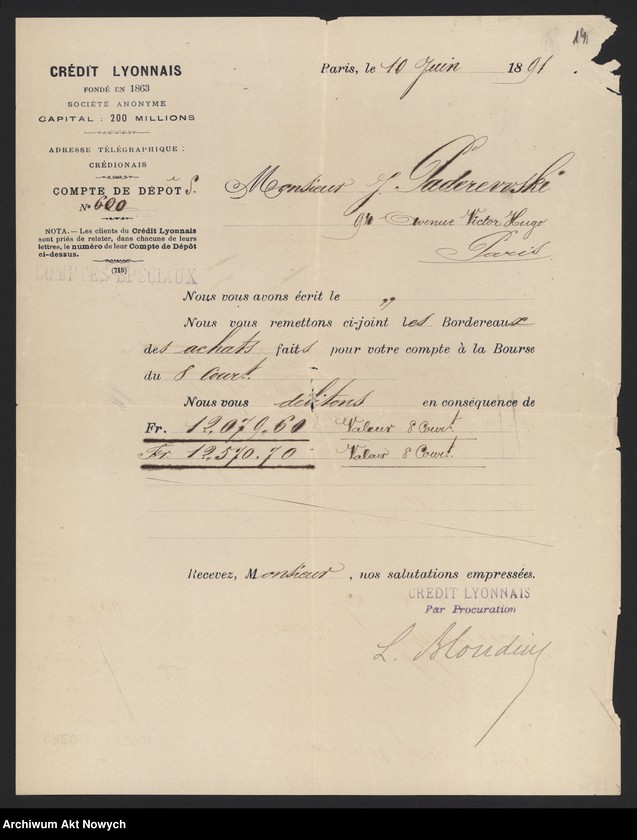 191
CRÉDIT LYONNAIS
FONDÉ EN 1863
SOCIÉTÉ ANONYME
CAPITAL : 200 MILLIONS
ADRESSE TÉLÉGRAPHIQUE :
CRÉDIONAIS
COMPTE DE DÉPOT S.
No 600
NOTA. — Les clients du Crédit Lyonnais
sont priés de relater, dans chacune de leurs
lettres, le numéro de leur Compte de Dépôt
ci-dessus.
(715)
COMPTES SPECIAUX
Paris, le 10 Juin 1891
Monsieur J. Paderevoski
94 avenue Victor Hugo
Paris
Nous vous avons écrit le "
Nous vous remettons ci-joint les Bordereaux
des achats faits pour votre compte à la Bourse
du 8 Court.
Nous vous débitons en conséquence de
Fr. 12,079.60 Valeur 8 Court.
Fr. 12,570.70 Valeur 8 Court.
Recevez, Monsieur, nos salutations empressées.
CREDIT LYONNAIS
Par Procuration
Archiwum Akt Nowych